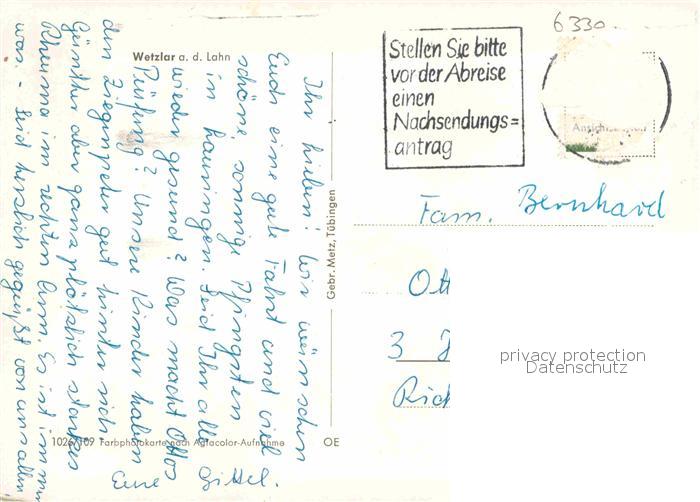 6330
Wetzlar a. d. Lahn
Stellen Sie bitte
vor der Abreise
einen
Nachsendungs=
antrag
Ihr Lieben! Wir wünschen
Euch eine gute Fahrt und viel
schöne, sonnige Pfingsten
in Lauingen. Seid Ihr alle
wieder gesund? Was macht Ottos
Prüfung? Unsere Kinder haben
den Ziegenpeter gut hinter sich
Günther aber ganz plötzlich starkes
Rheuma im rechten Arm. Es ist immer
was. - Seid herzlich gegrüßt von uns allen
Eure Gittel.
Gebr. Metz, Tübingen
Fam. Bernhard
Ott
3
Rich
privacy protection
Datenschutz
1026/109 Farbphotokarte nach Agfacolor-Aufnahme
OE